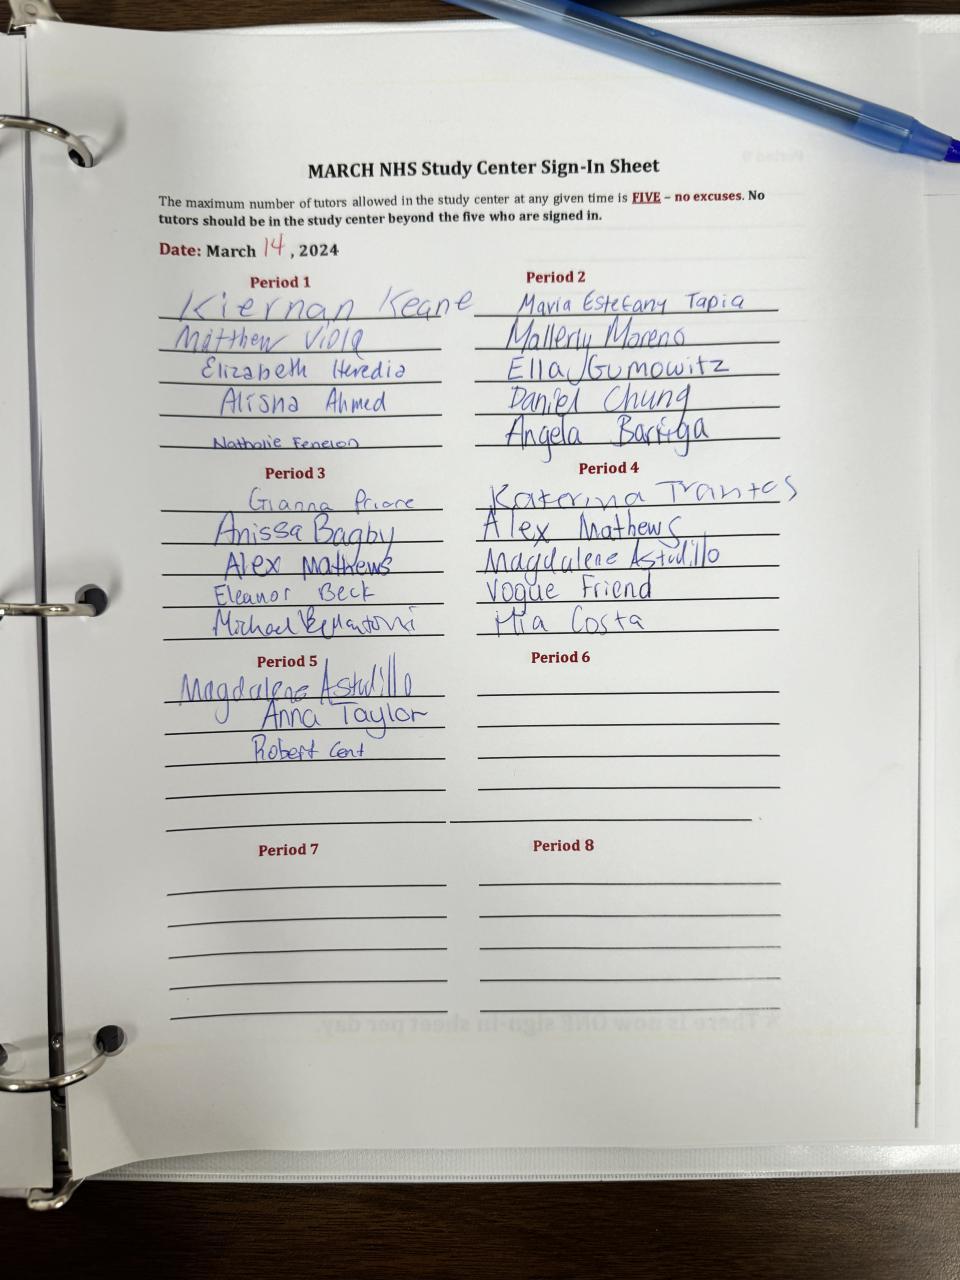 MARCH NHS Study Center Sign-In Sheet
The maximum number of tutors allowed in the study center at any given time is FIVE – no excuses. No
tutors should be in the study center beyond the five who are signed in.
Date: March 14, 2024
Period 1
Kiernan Keane
Matthew Viola
Elizabeth Heredia
Alisha Ahmed
Nathalie Fenelon
Period 2
Maria Estefany Tapia
Mallerly Moreno
Ella Gumowitz
Daniel Chung
Angela Barriga
Period 3
Gianna Priore
Anissa Bagby
Alex Mathews
Eleanor Beck
Michael
Period 4
Katerina Trantos
Alex Mathews
Magdalene Astudillo
Vogue Friend
Mia Costa
Period 5
Magdalene Astudillo
Anna Taylor
Robert Cent
Period 6
Period 7
Period 8
There is now ONE sign-in sheet per day.